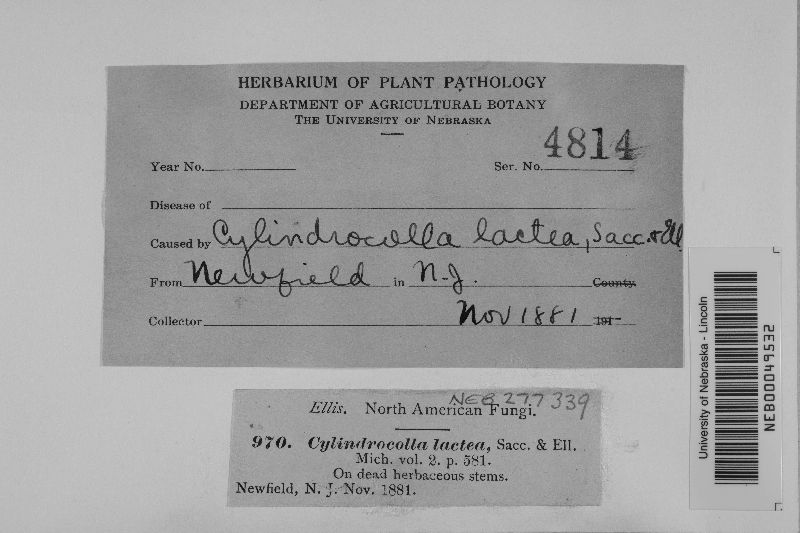 HERBARIUM OF PLANT PATHOLOGY
DEPARTMENT OF AGRICULTURAL BOTANY
THE UNIVERSITY OF NEBRASKA
4814
Year No. Ser. No.
Disease of
Caused by Cylindrocolla lactea, Sacc. & Ell.
From Newfield in N. J. County.
Collector Nov 1881 191-
NEB 277339
Ellis. North American Fungi.
970. Cylindrocolla lactea, Sacc. & Ell.
Mich. vol. 2. p. 581.
On dead herbaceous stems.
Newfield, N. J. Nov. 1881.
University of Nebraska - Lincoln
NEB00049532